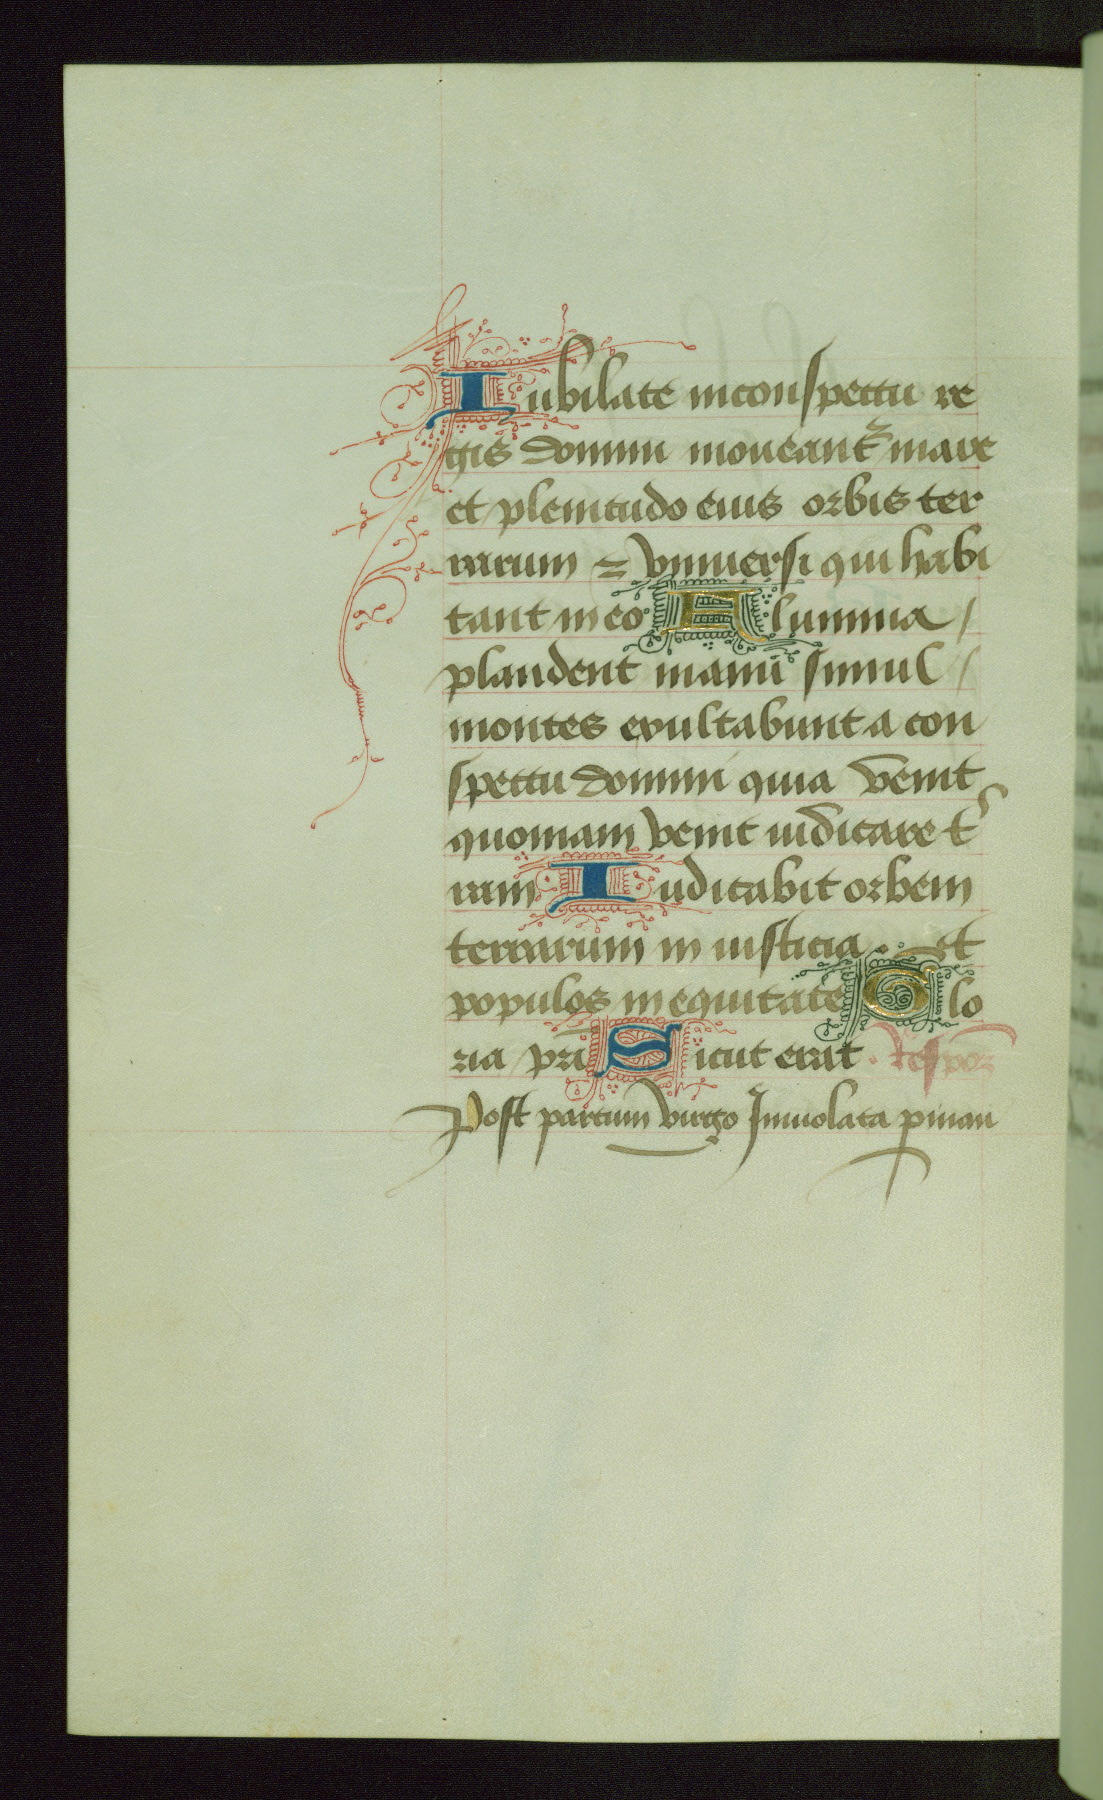 Iubilate in conspectu re
gis domini moueant᷑ mare
et plenitudo eius orbis ter
rarum ⁊ vniuersi qui habi
tant in eo Flumina /
plaudent manu simul /
montes exultabunt a con
spectu domini quia venit
quoniam venit iudicare t̉
ram Iudicabit orbem
terrarum in iusticia. Et
populos in equitate Glo
ria pr̄i Sicut erat. Respoñ
Post partum virgo Inuiolata p̱man